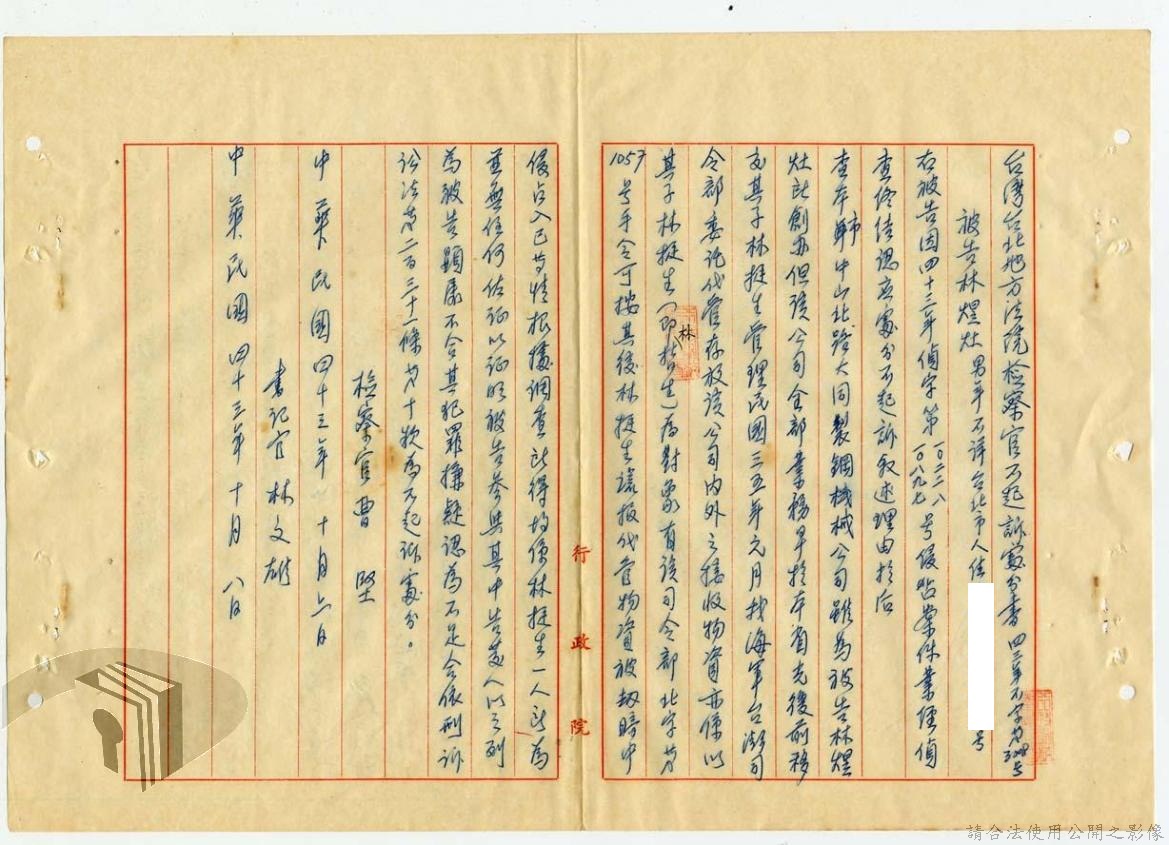 台湾台北地方法院检察官不起訴處分書 四三年不字第
被告林煋灶 男年不详台北市人住 号
右被告因四十三年偵字第一〇二二八 一〇八九七号侵占案件業經偵
查終结認应處分不起訴敘述理由於后
查本市中山北路大同製鋼机械公司雖為被告林煋
灶所創办但該公司全部業務早於本省光復前移
交其子林挺生管理民國三五年元月我海軍台澎司
令部委託代管存放該公司内外之接收物資亦係以
其子林挺生(即挺生)為對象有該司令部北字第
1057号手令可按其後林挺生謊报代管物資被劫暗中
侵占入己等情根據調查所得均係林挺生一人所為
並無任何佐证以证明被告參與其中告發人以之列
為被告顯屬不合其犯罪嫌疑認為不足合依刑訴
訟法第二百三十一條第十款為不起訴處分。
检察官曹 堅
中華民國四十三年 十月六日
書記官林文雄
中華民國四十三年十月 八日
行政院
林
請合法使用公開之影像